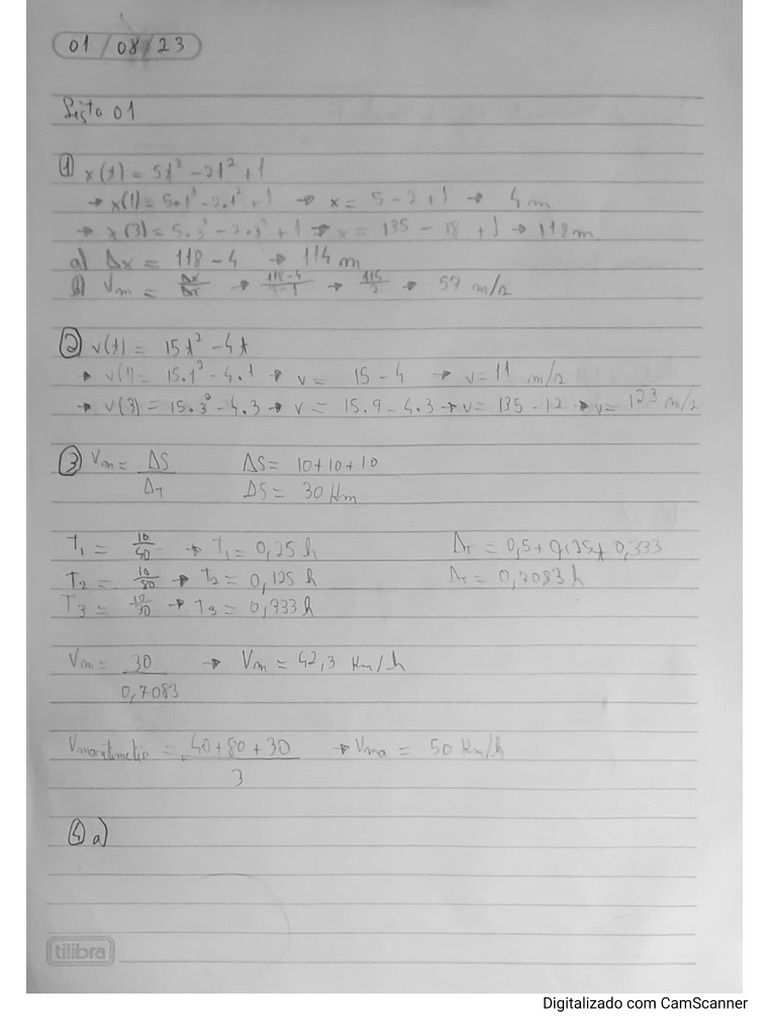 01/08/23
Lista 01
① x(t) = 5t³ - 2t² + 1
→ x(1) = 5.1³ - 2.1² + 1 → x = 5 - 2 + 1 → 4 m
→ x(3) = 5.3³ - 2.3² + 1 → x = 135 - 18 + 1 → 118 m
a) Δx = 118 - 4 → 114 m
b) Vm = Δx/ΔT → 118-4/3-1 → 114/2 → 57 m/s
② v(t) = 15t² - 4t
→ v(1) = 15.1² - 4.1 → v = 15 - 4 → v = 11 m/s
→ v(3) = 15.3² - 4.3 → v = 15.9 - 4.3 → v = 135 - 12 → v = 123 m/s
③ Vm = ΔS/ΔT ΔS = 10+10+10
ΔS = 30 Km
T1 = 10/40 → T1 = 0,25 h ΔT = 0,5 + 0,125 + 0,333
T2 = 10/80 → T2 = 0,125 h ΔT = 0,7083 h
T3 = 10/30 → T3 = 0,333 h
Vm = 30/0,7083 → Vm = 42,3 Km/h
Vmaritimetic = 40+80+30/3 → Vma = 50 Km/h
④ a)
tilibra
Digitalizado com CamScanner